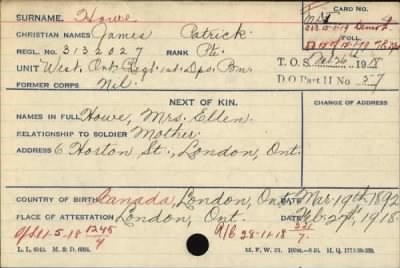 SURNAME. Howe
CARD NO.
CHRISTIAN NAMES James Patrick
REGL. NO. 3132027 RANK Pte.
FOLL.
UNIT West. Ont. Regt. 1st. Dpo. Bn.
T. O. S. 1918
FORMER CORPS Nil.
D.O Part II No 57
NEXT OF KIN.
CHANGE OF ADDRESS
NAMES IN FULL Howe, Mrs. Ellen.
RELATIONSHIP TO SOLDIER Mother.
ADDRESS 6 Horton St., London, Ont.
COUNTRY OF BIRTH Canada, London, Ont. DATE Mar. 19th. 1892
PLACE OF ATTESTATION London, Ont. DATE Feb. 27th, 1918.
11-5-18 1245/9 A/C 28-11-18 331/7
L. L. 6945. M. & D. 6984.
M. F. W. 23.